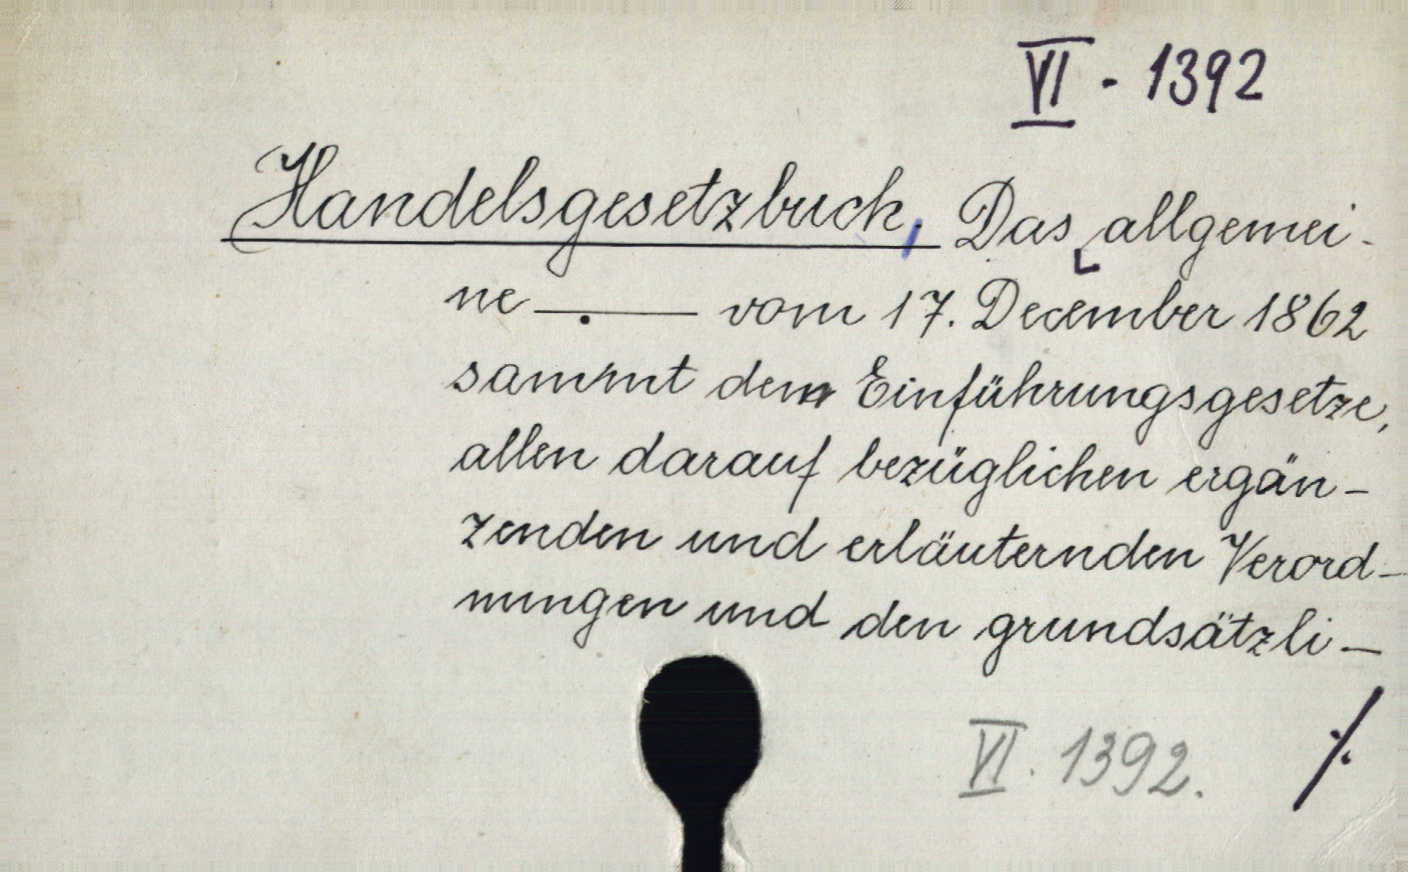 VI - 1392
Handelsgesetzbuch, Das allgemei-
ne —.— vom 17. December 1862
sammt dem Einführungsgesetze,
allen darauf bezüglichen ergän-
zenden und erläuternden Verord-
nungen und den grundsätzli-
VI. 1392. ./.